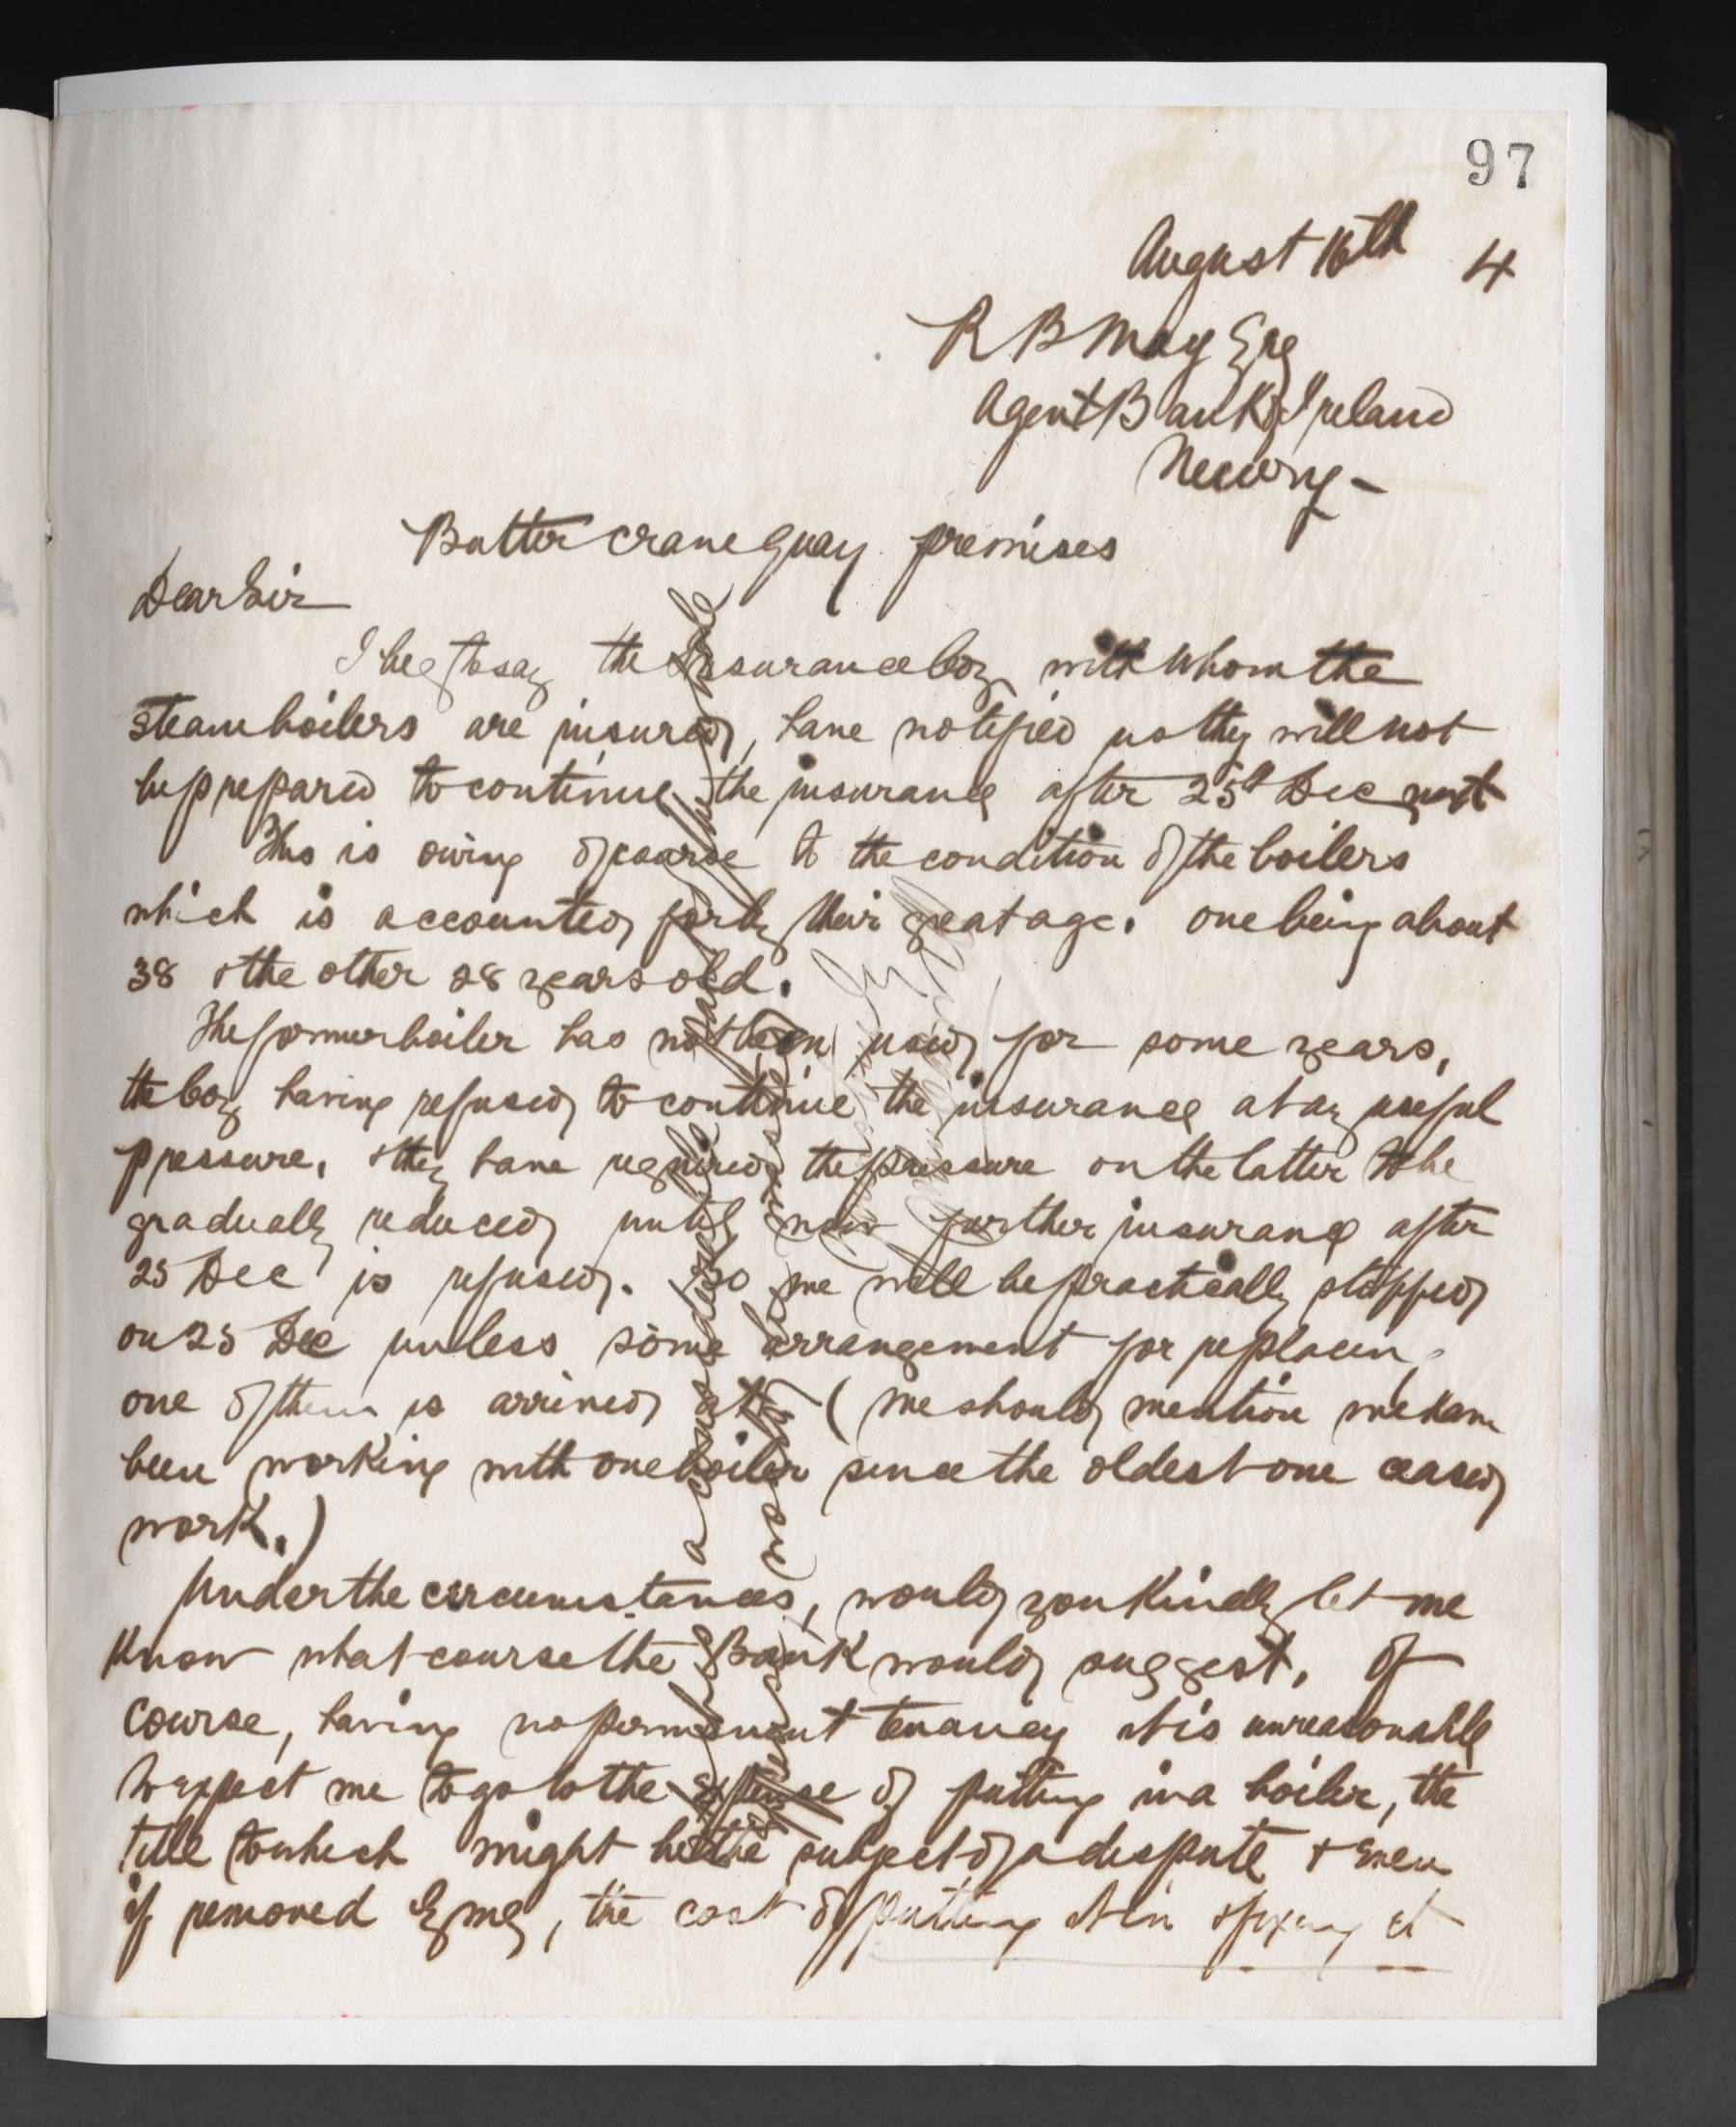 97
August 16th 4
R B May Esq
Agent Bank of Ireland
Newry -
Butter crane Quay premises
Dear Sir
I beg to say the Insurance Coy with whom the
steam boilers are insured, have notified us they will not
be prepared to continue the insurance after 25th Dec next
This is owing of course to the condition of the boilers
which is accounted for by their great age. one being about
38 & the other 28 years old.
The former boiler has not been used for some years,
the Coy having refused to continue the insurance at any useful
pressure. & they have required the pressure on the latter to be
gradually reduced until now further insurance after
25 Dec is refused. So we will be practically stopped
on 25 Dec unless some arrangement for replacing
one of them is arrived at (we should mention we have
been working with one boiler since the oldest one ceased
work.)
Under the circumstances, would you kindly let me
know what course the Bank would suggest. Of
course, having no permanent tenancy it is unreasonable
to expect me to go to the expense of putting in a boiler, the
title to which might be the subject of a dispute & even
if removed by me, the cost of putting it in & fixing it